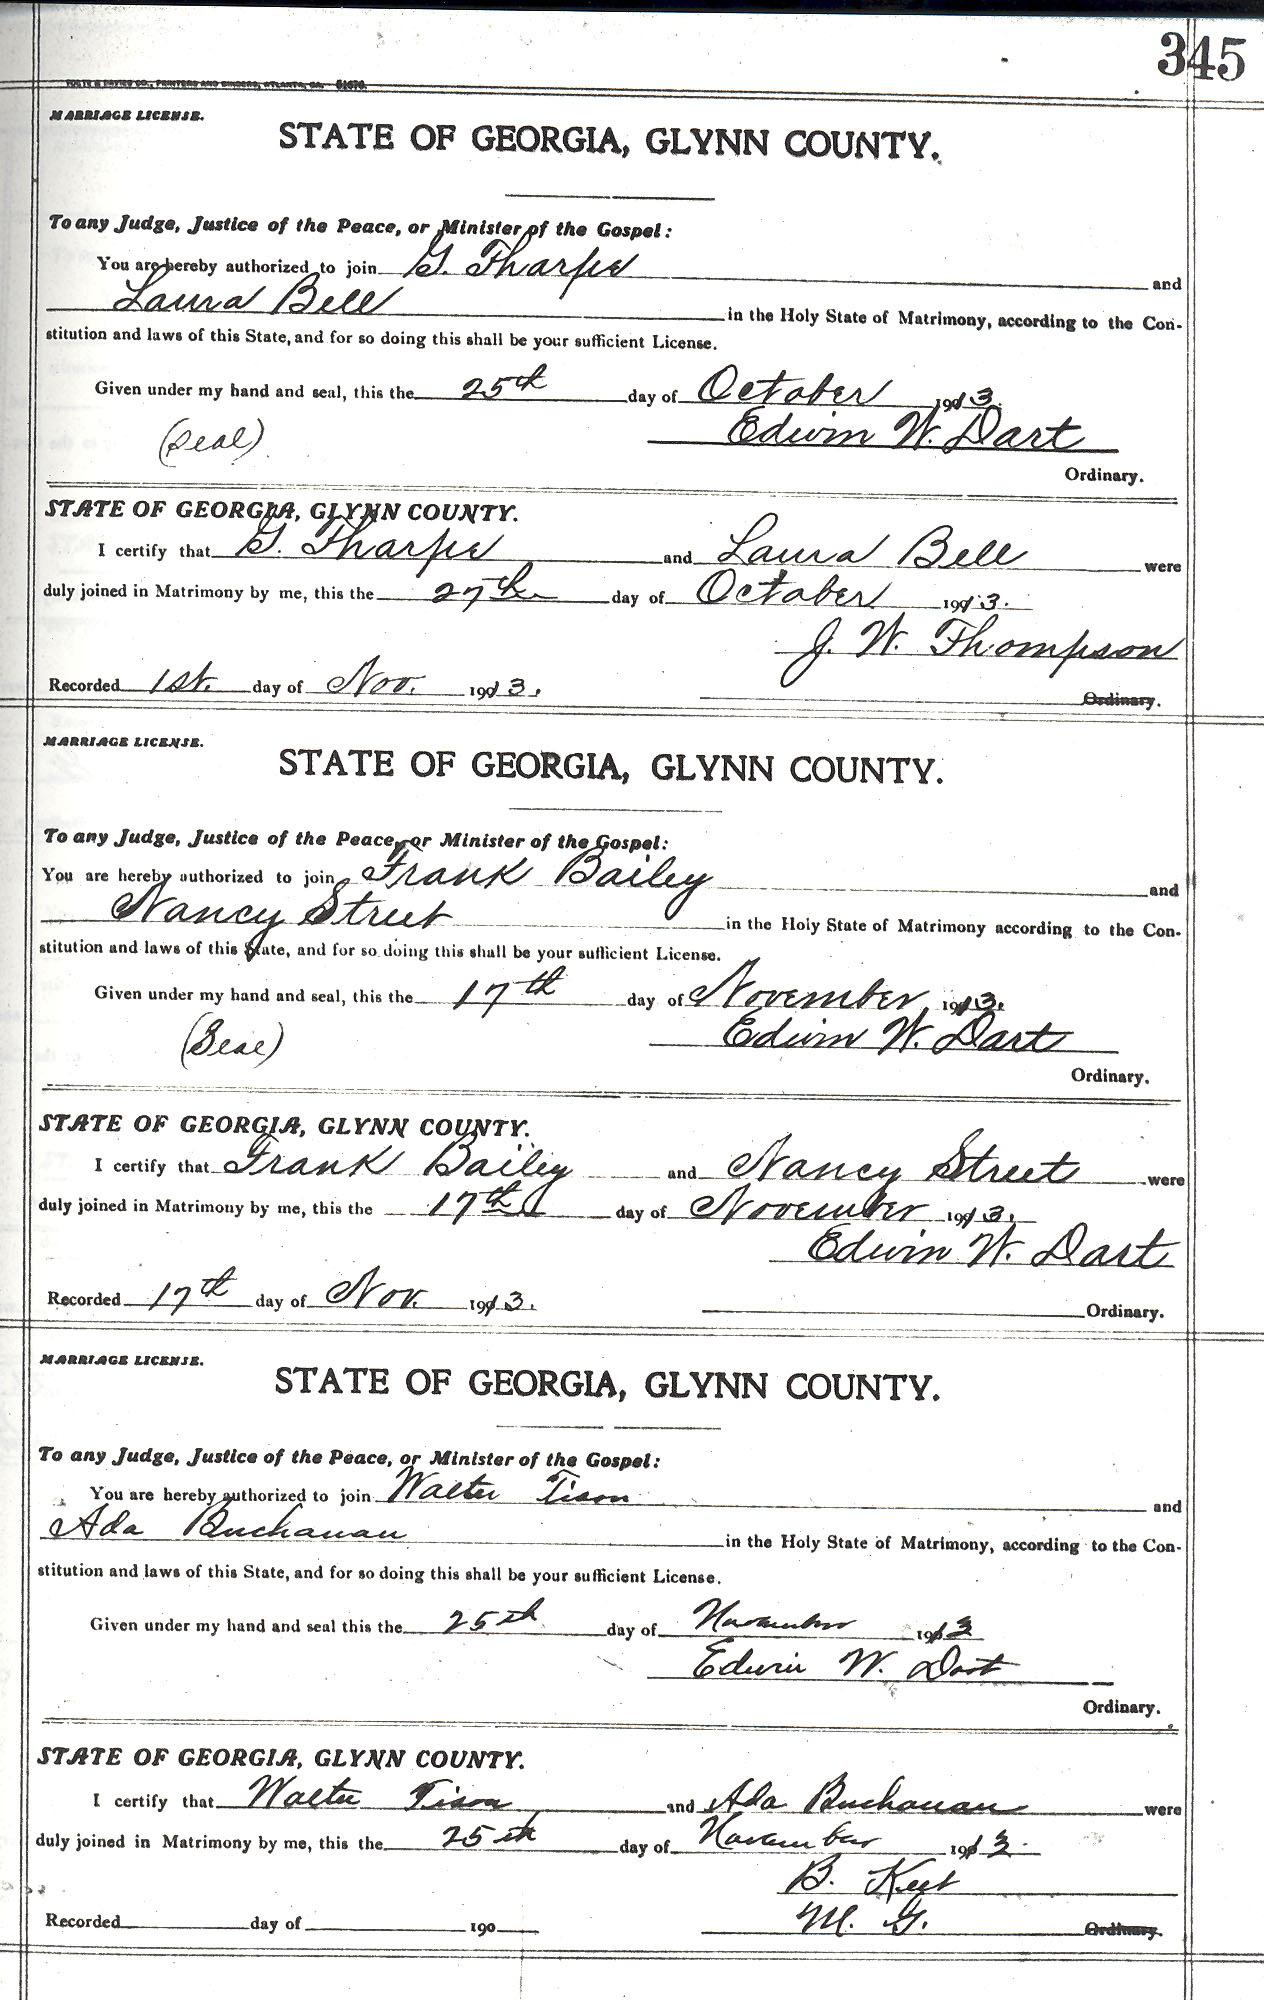 345
FOOTE & DAVIES CO., PRINTERS AND BINDERS, ATLANTA, GA. 51676.
MARRIAGE LICENSE.
STATE OF GEORGIA, GLYNN COUNTY.
To any Judge, Justice of the Peace, or Minister of the Gospel:
You are hereby authorized to join G. Tharpe and
Laura Bell in the Holy State of Matrimony, according to the Con-
stitution and laws of this State, and for so doing this shall be your sufficient License.
Given under my hand and seal, this the 25th day of October 1913.
(Seal) Edwin W. Dart
Ordinary.
STATE OF GEORGIA, GLYNN COUNTY.
I certify that G. Tharpe and Laura Bell were
duly joined in Matrimony by me, this the 27th day of October 1913.
J. W. Thompson
Recorded 1st. day of Nov. 1913. Ordinary.
MARRIAGE LICENSE.
STATE OF GEORGIA, GLYNN COUNTY.
To any Judge, Justice of the Peace, or Minister of the Gospel:
You are hereby authorized to join Frank Bailey and
Nancy Street in the Holy State of Matrimony according to the Con-
stitution and laws of this State, and for so doing this shall be your sufficient License.
Given under my hand and seal, this the 17th day of November 1913.
(Seal) Edwin W. Dart
Ordinary.
STATE OF GEORGIA, GLYNN COUNTY.
I certify that Frank Bailey and Nancy Street were
duly joined in Matrimony by me, this the 17th day of November 1913.
Edwin W. Dart
Recorded 17th day of Nov. 1913. Ordinary.
MARRIAGE LICENSE.
STATE OF GEORGIA, GLYNN COUNTY.
To any Judge, Justice of the Peace, or Minister of the Gospel:
You are hereby authorized to join Walter Tison and
Ada Buchanan in the Holy State of Matrimony, according to the Con-
stitution and laws of this State, and for so doing this shall be your sufficient License.
Given under my hand and seal this the 25th day of November 1913
Edwin W. Dart
Ordinary.
STATE OF GEORGIA, GLYNN COUNTY.
I certify that Walter Tison and Ada Buchanan were
duly joined in Matrimony by me, this the 25th day of November 1913.
B.
M. G.
Recorded day of 190 Ordinary.